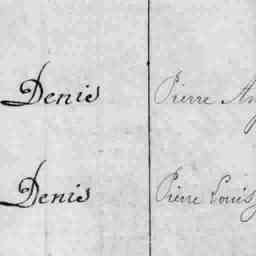 Denis Pierre
Denis Pierre Louis